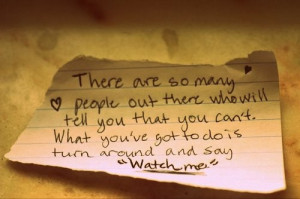 There are so many
people out there who will
tell you that you can't.
What you've got to do is
turn around and say
"Watch me."